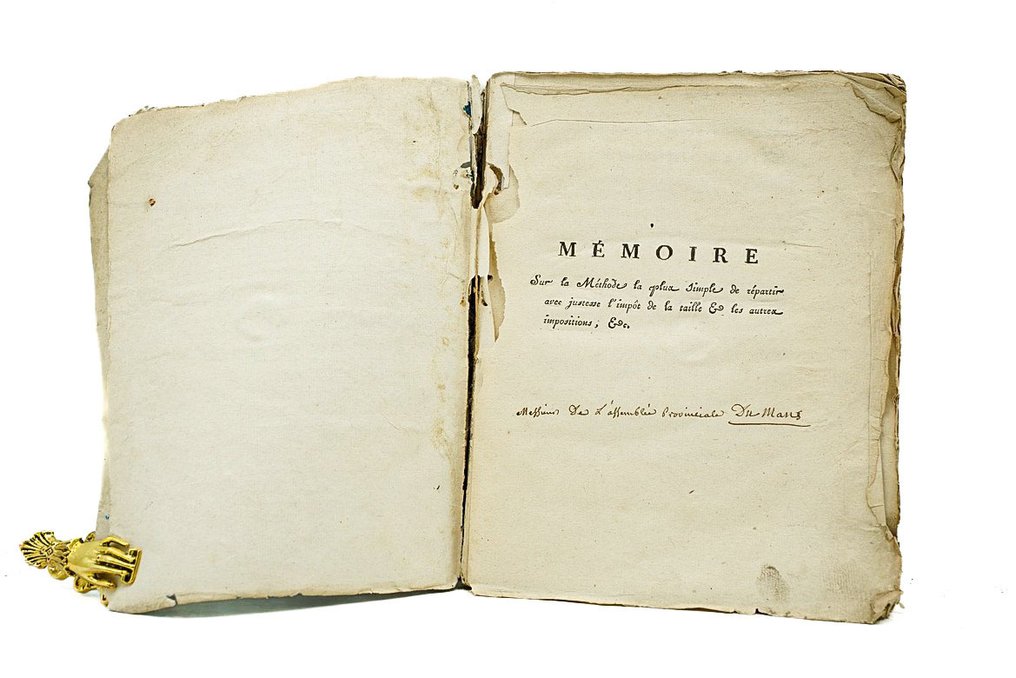 MÉMOIRE
Sur la Méthode la plus simple de répartir
avec justesse l'impôt de la taille & les autres
impositions, &c.
Messieurs De L'assemblée Provinciale Du Mans